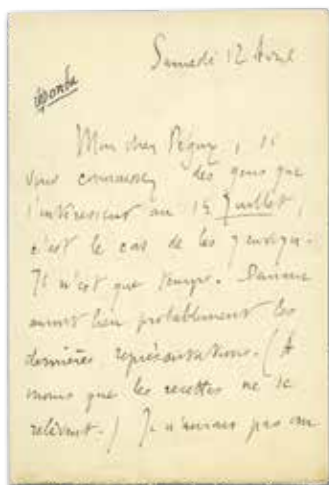 Samedi 12 Avril
Mon cher Péguy, si
vous connaissez des gens que
s'intéressent au 14 Juillet,
c'est le cas de les y envoyer.
Il n'est que temps. Demain
auront lieu probablement les
dernières représentations. (À
moins que les recettes ne se
relèvent.) Je n'aurais pas cru